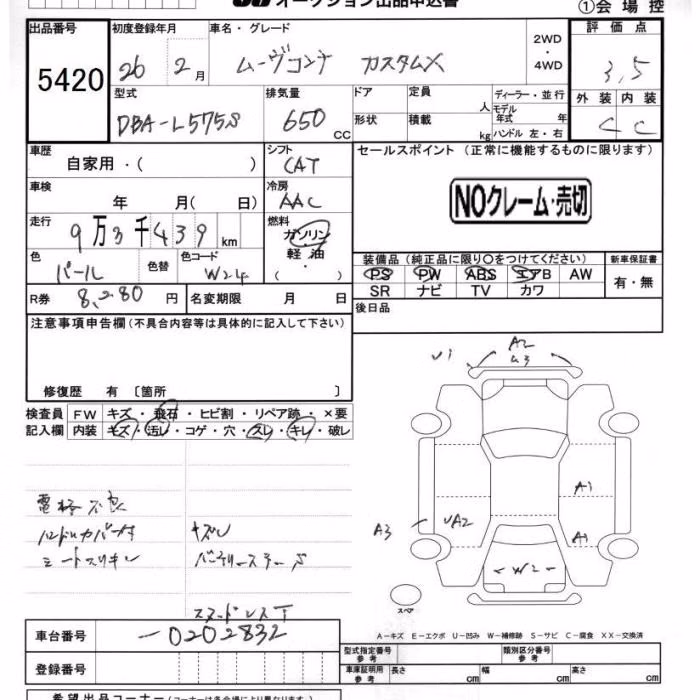 オークション出品申込書
①会場控
出品番号 初度登録年月 車名・グレード 評価点
5420 26年 2月 ムーヴコンテ カスタムX 2WD・4WD 3,5
型式 排気量 ドア 定員 人 ディーラー・並行 外装 内装
DBA-L575S 650cc 形状 積載 kg モデル年式 年 ハンドル 左・右 C C
車歴 シフト セールスポイント（正常に機能するものに限ります）
自家用・（ ） CAT
車検 冷房 NOクレーム・売切
年 月（ 日） AAC
走行 燃料
9万3千439km ガソリン
色 色替 色コード 軽油 装備品（純正品に限り○をつけてください） 新車保証書
パール W24 （ ） PS PW ABS エアB AW 有・無
R券 8,280円 名変期限 月 日 SR ナビ TV カワ
後日品
注意事項申告欄（不具合内容等は具体的に記入して下さい）
修復歴 有〔箇所 〕
検査員 FW キズ・飛石・ヒビ割・リペア跡・×要
記入欄 内装 キズ・汚レ・コゲ・穴・スレ・キレ・破レ
A2
U1
A1
A3 UA2 A1
W2
スペア
電格不良
ハンドルカバー付 キズレ
シートスリキレ
車台番号 -0202832
A－キズ E－エクボ U－凹み W－補修跡 S－サビ C－腐食 XX－交換済
登録番号
型式指定番号 参考 類別区分番号 参考
車庫証明用 参考 長さ cm 幅 cm 高さ cm
希望出品コーナー